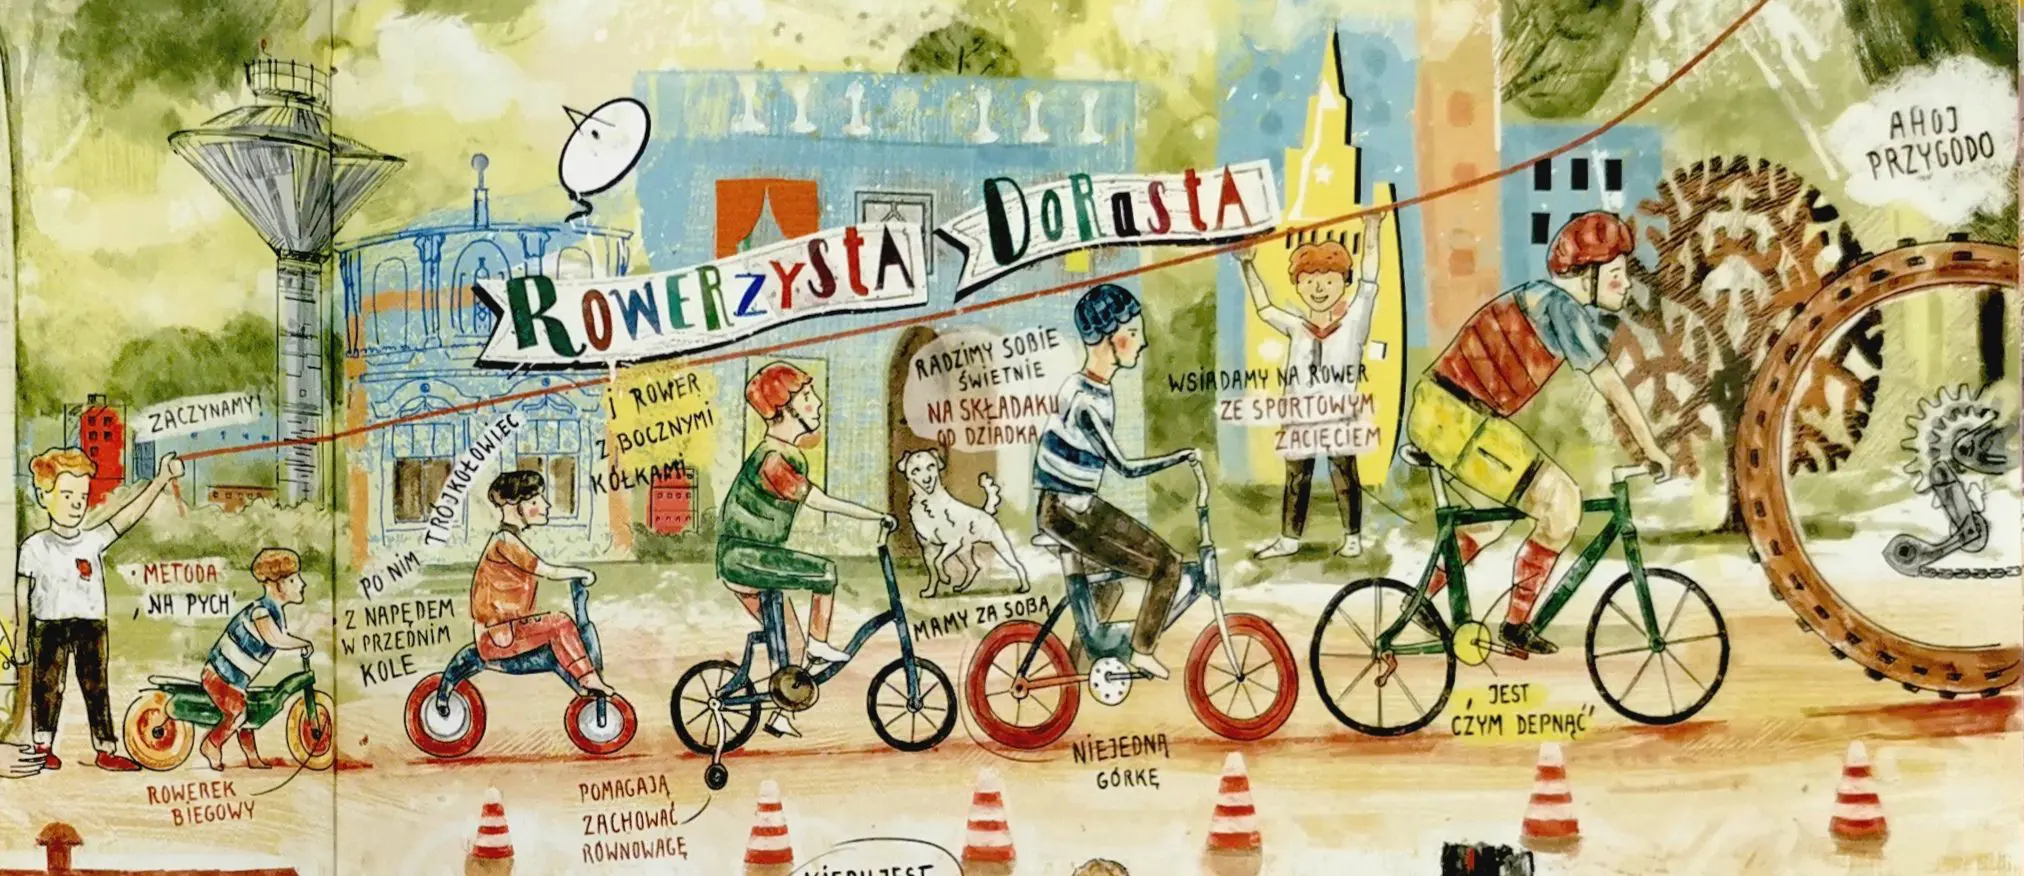 ROWERZYSTA DORASTA
AHOJ
PRZYGODO
ZACZYNAMY!
METODA
„NA PYCH”
ROWEREK
BIEGOWY
PO NIM
TRÓJKOŁOWIEC
Z NAPĘDEM
W PRZEDNIM
KOLE
I ROWER
Z BOCZNYMI
KÓŁKAMI
POMAGAJĄ
ZACHOWAĆ
RÓWNOWAGĘ
RADZIMY SOBIE
ŚWIETNIE
NA SKŁADAKU
OD DZIADKA
MAMY ZA SOBĄ
NIEJEDNĄ
GÓRKĘ
WSIADAMY NA ROWER
ZE SPORTOWYM
ZACIĘCIEM
„JEST
CZYM DEPNĄĆ”